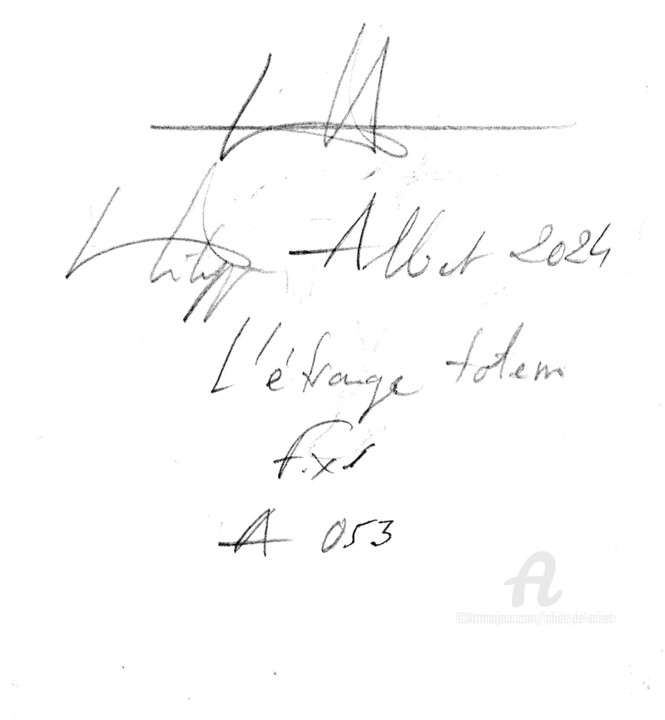 Philippe Albet 2024
L'étrange totem
Fixé
A 053